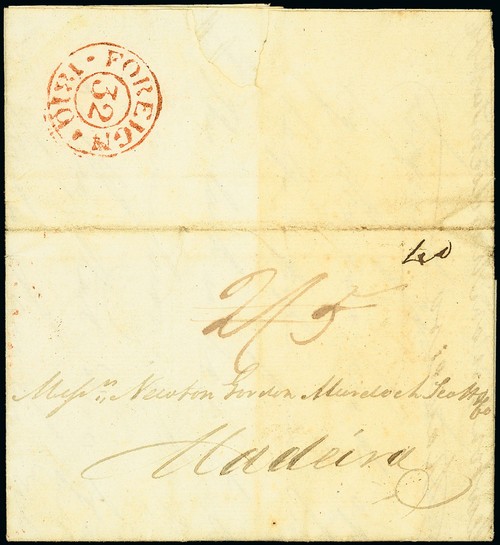 FOREIGN
32
1810
2/5
Messrs Newton Gordon Murdoch Scott & Co
Madeira